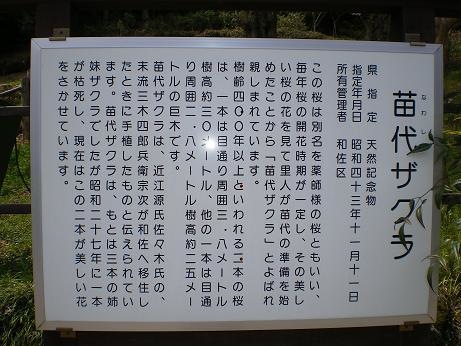 苗代ザクラ
なわしろ
県指定 天然記念物
指定年月日 昭和四十三年十一月十一日
所有管理者 和佐区
この桜は別名を薬師様の桜ともいい、
毎年桜の開花時期が一定し、その美し
い桜の花を見て里人が苗代の準備を始
めたことから「苗代ザクラ」とよばれ
親しまれています。
樹齢四〇〇年以上といわれる二本の桜
は、一本は目通り周囲三・八メートル
樹高約三〇メートル、他の一本は目通
り周囲二・八メートル樹高約二五メー
トルの巨木です。
苗代ザクラは、近江源氏佐々木氏の、
末流三木四郎兵衛宗次が和佐へ移住し
たときに手植したものと伝えられてい
ます。苗代ザクラは、もとは三本の姉
妹ザクラでしたが昭和二十七年に一本
が枯死し、現在はこの二本が美しい花
をさかせています。